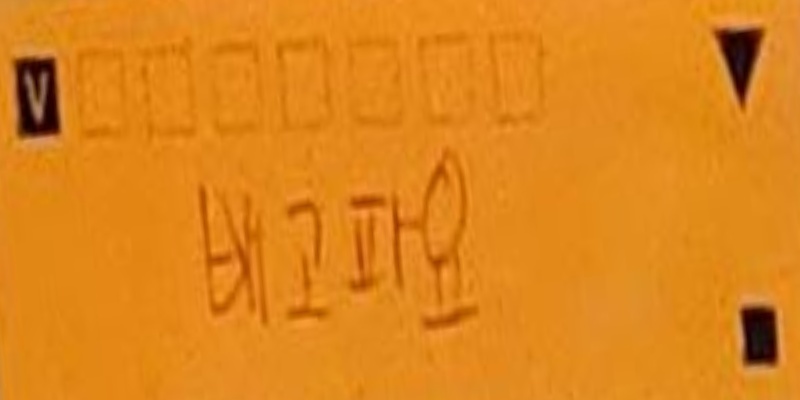 V
배고파요